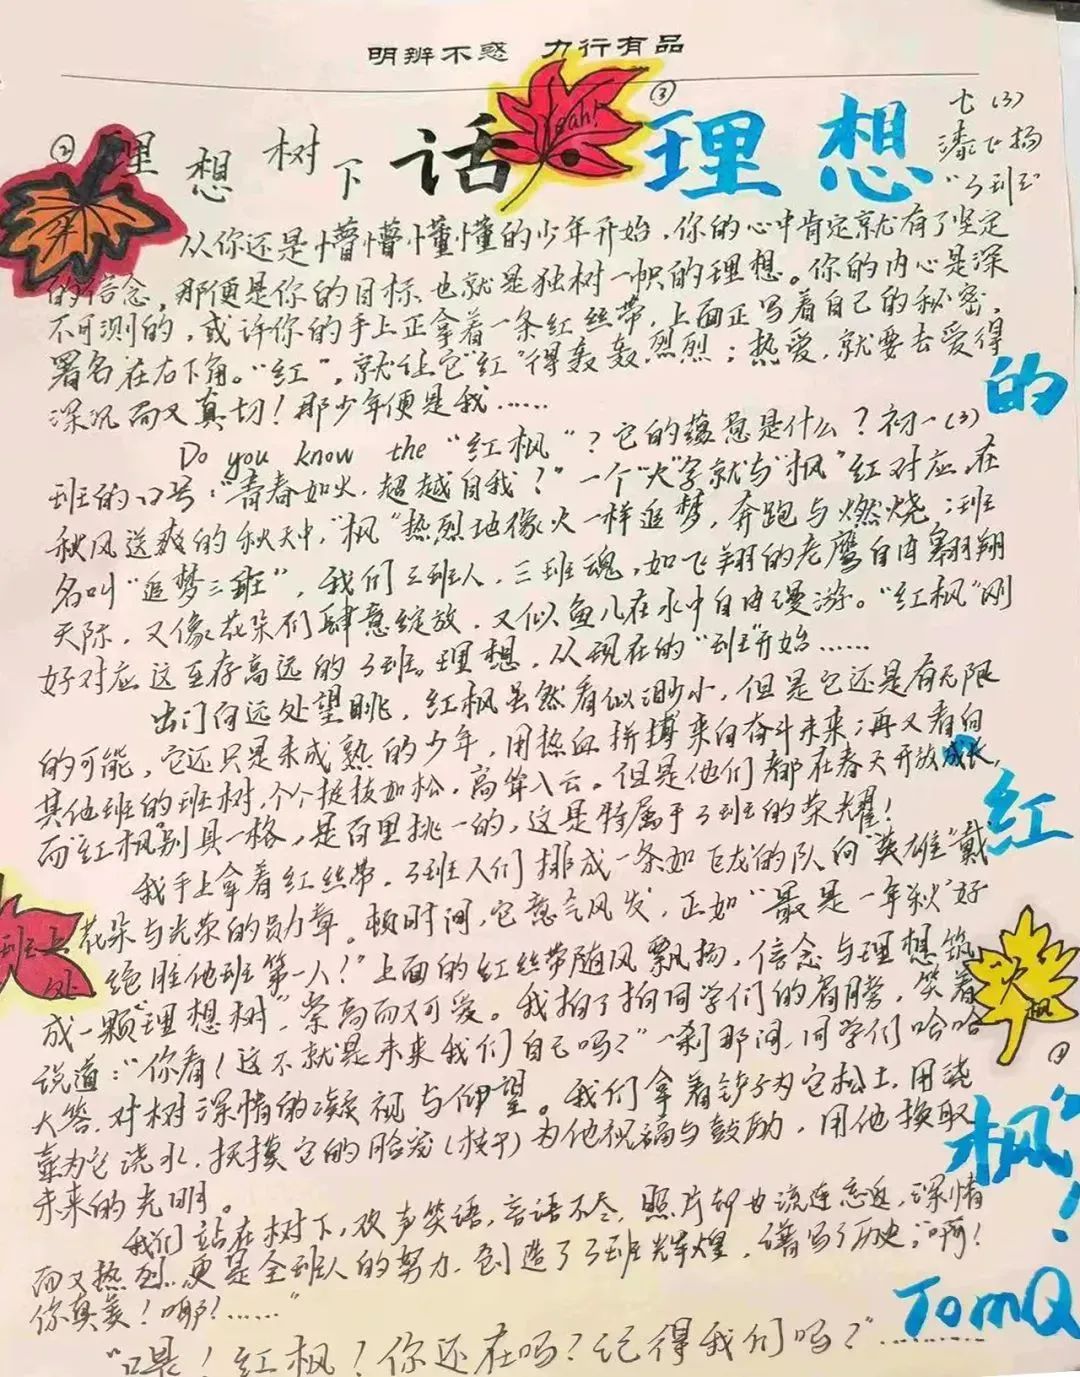 明辨不惑 力行有品
理想树下话理想的"红枫"!
七(3)
漆飞扬
"3班"
yeah!
从你还是懵懵懂懂的少年开始，你的心中肯定就有了坚定
的信念，那便是你的目标，也就是独树一帜的理想。你的内心是深
不可测的，或许你的手上正拿着一条红丝带，上面正写着自己的秘密，
署名在右下角。"红"，就让它"红"得轰轰烈烈；热爱，就要去爱得
深沉而又真切！那少年便是我……
Do you know the "红枫"？它的蕴意是什么？初一(3)
班的口号："青春如火，超越自我？"一个"火"字就与"枫"红对应，在
秋风送爽的秋天中，"枫"热烈地像火一样追梦，奔跑与燃烧；班
名叫"追梦三班"，我们三班人，三班魂，如飞翔的老鹰自由翱翔
天际，又像花朵们肆意绽放，又似鱼儿在水中自由漫游。"红枫"刚
好对应这至存高远的3班。理想，从现在的"班"开始……
出门向远处望眺，红枫虽然看似渺小，但是它还是有无限
的可能，它还只是未成熟的少年，用热血拼搏来向奋斗未来；再又看向
其他班的班树，个个挺拔如松，高耸入云。但是他们都在春天开放成长，
而"红枫"别具一格，是百里挑一的，这是特属于3班的荣耀！
我手上拿着红丝带，3班人们排成一条如巨龙的队向"英雄"戴
上花朵与光荣的勋章。顿时间，它意气风发，正如"最是一年秋好
处，绝胜他班第一人！"上面的红丝带随风飘扬，信念与理想筑
成一颗"理想树"，崇高而又可爱。我拍了拍同学们的肩膀，笑着
说道："你看！这不就是未来我们自己吗？"一刹那间，同学们哈哈
大答，对树深情的凝视与仰望。我们拿着铲子为它松土，用浇
壶为它浇水，抚摸它的胳膊(枝干)为他祝福与鼓励，用他换取
未来的光明。
我们站在树下，欢声笑语，言语不尽，照片却也流连忘返，深情
而又热烈，更是全班人的努力，创造了3班辉煌，谱写了历史；"啊！
你真美！哪！……"
"嘿！红枫！你还在吗？记得我们吗？"………
3班
火枫
TomQ